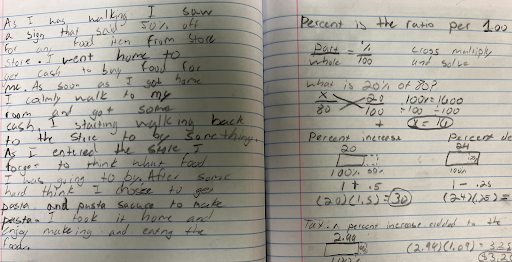 As I was walking I saw
a sign that said 50% off
for any food item from store
store. I went home to
get cash to buy food for
me. As soon as I got home
I calmly walk to my
room and got some
cash, I starting walking back
to the store to by something.
As I entered the store I
forgot to think what food
I was going to by. After some
hard think I choose to get
pasta and pasta sacuce to make
pasta. I took it home and
enjoy makeing and eating the
food.
Percent is the ratio per 100
Part = % cross multiply
whole 100 and solve
what is 20% of 80?
x 20 100x = 1600
80 100 ÷100 ÷100
x = 16
Percent increase Percent de
20 24
100% 50%
1 + .5 1 - .25
(20)(1.5) = 30 (24)(.25) =
Tax: A percent increase added to the
2.99
(2.99)(1.09) = 325
100%